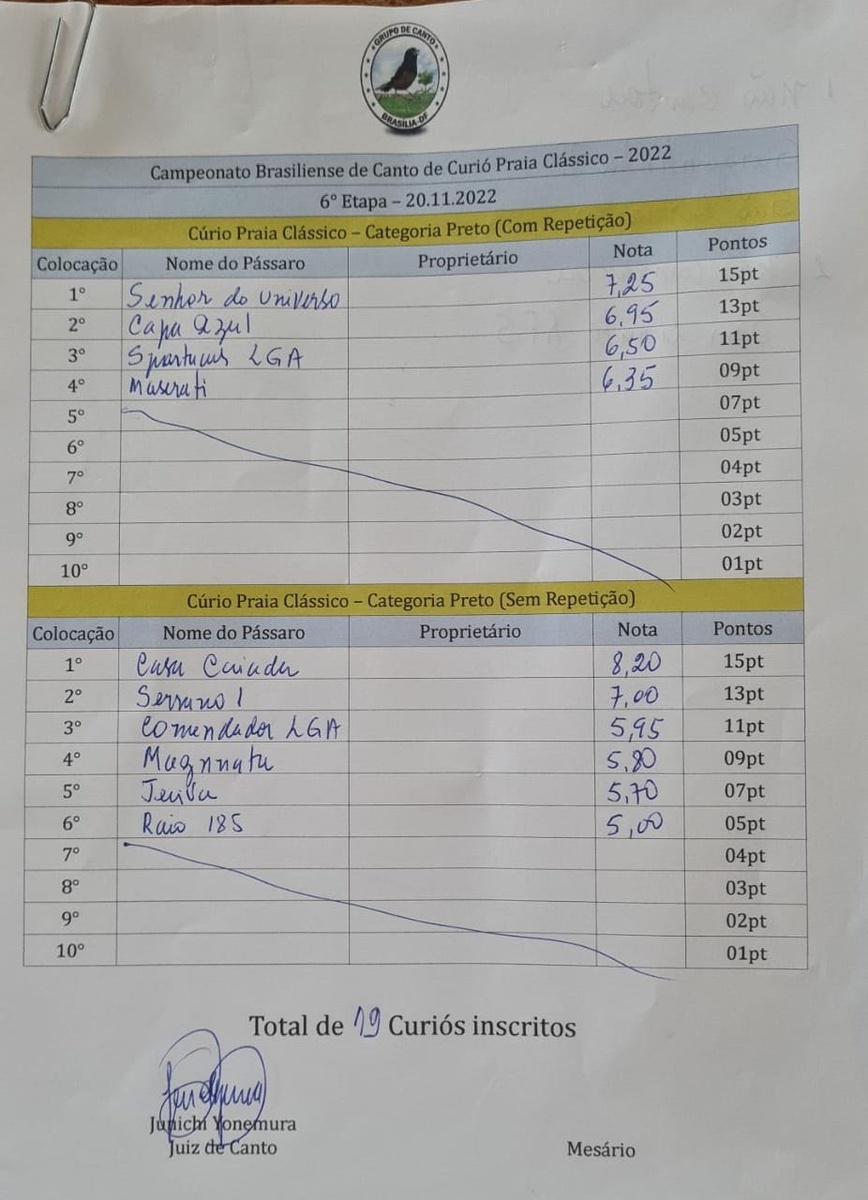 GRUPO DE CANTO
BRASÍLIA-DF
Campeonato Brasiliense de Canto de Curió Praia Clássico – 2022
6° Etapa – 20.11.2022
Cúrio Praia Clássico – Categoria Preto (Com Repetição)
Colocação Nome do Pássaro Proprietário Nota Pontos
1° Senhor do Universo 7,25 15pt
2° Capa Azul 6,95 13pt
3° Spartacus LGA 6,50 11pt
4° Maserati 6,35 09pt
5° 07pt
6° 05pt
7° 04pt
8° 03pt
9° 02pt
10° 01pt
Cúrio Praia Clássico – Categoria Preto (Sem Repetição)
Colocação Nome do Pássaro Proprietário Nota Pontos
1° Casa Caiada 8,20 15pt
2° Serrano 1 7,00 13pt
3° Comendador LGA 5,95 11pt
4° 5,80 09pt
5° 5,70 07pt
6° Raio 185 5,00 05pt
7° 04pt
8° 03pt
9° 02pt
10° 01pt
Total de 19 Curiós inscritos
Junichi Yonemura
Juiz de Canto Mesário